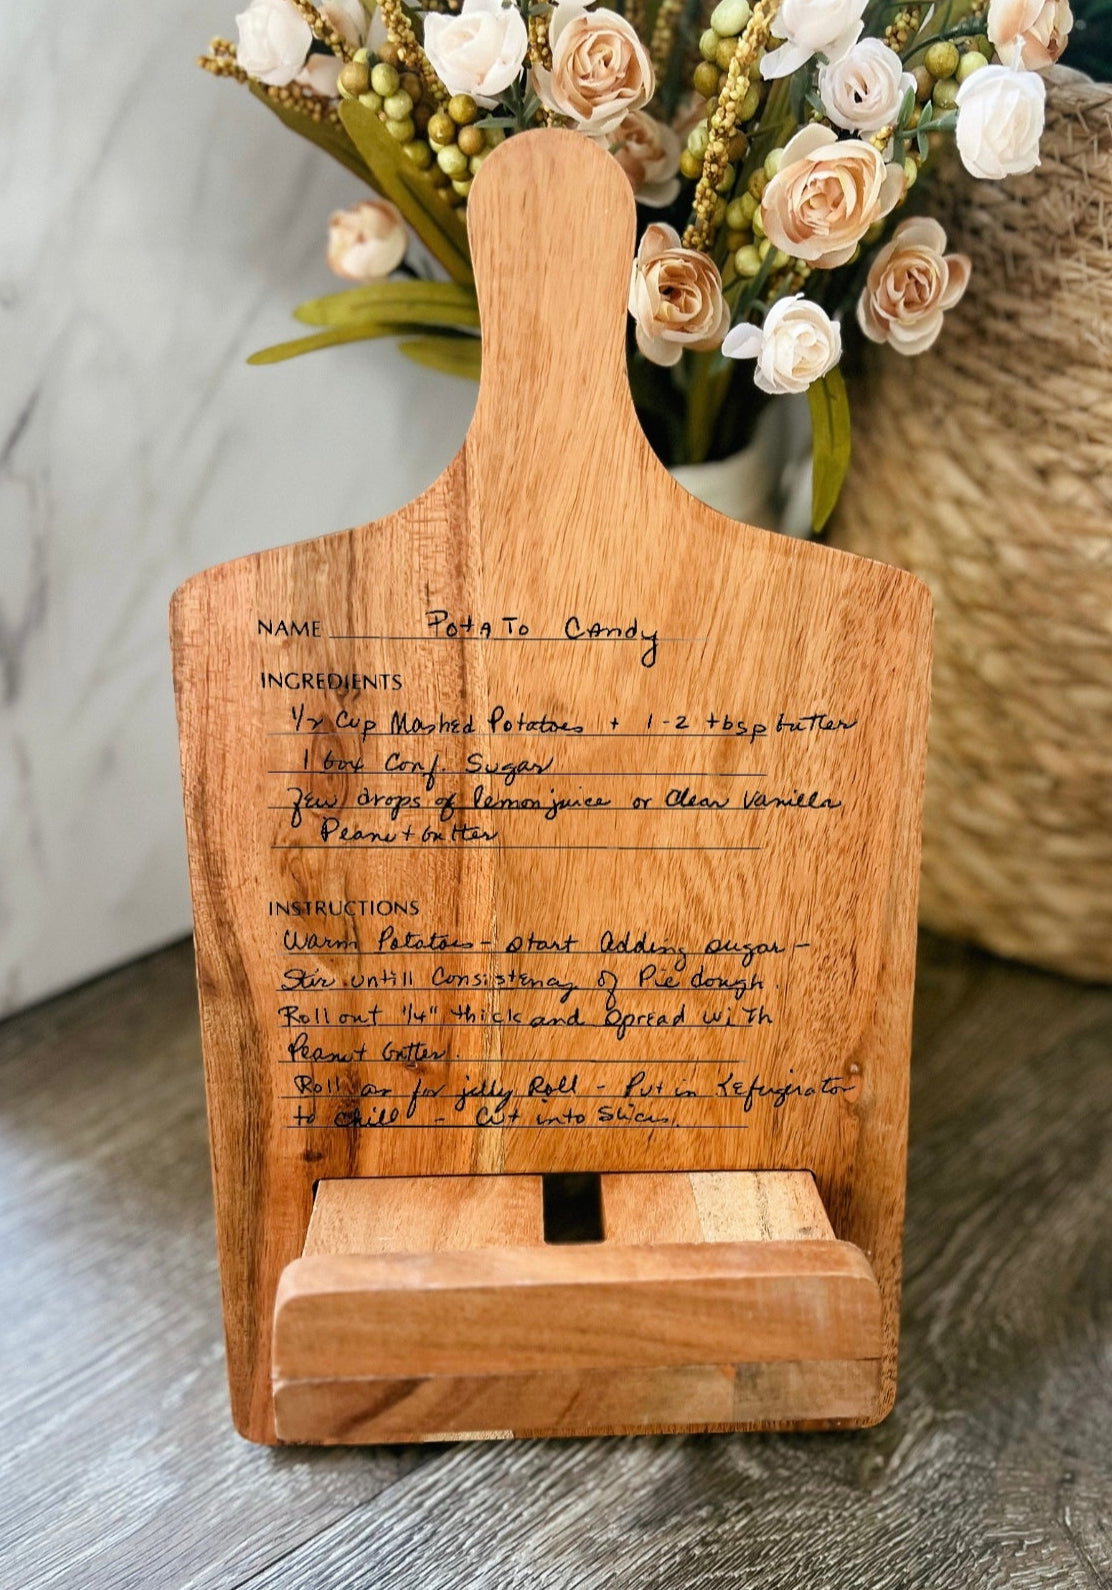 NAME PotATo CAndy
INGREDIENTS
1/2 Cup Mashed Potatoes + 1-2 tbsp butter
1 box Conf. Sugar
Few drops of lemon juice or Clear Vanilla
Peanut butter
INSTRUCTIONS
Warm Potatoes - Start Adding sugar -
Stir untill Consistency of Pie dough.
Roll out 1/4" thick and Spread wiTh
Peanut butter.
Roll as for jelly Roll - Put in Refrigirator
to chill - Cut into Slices.